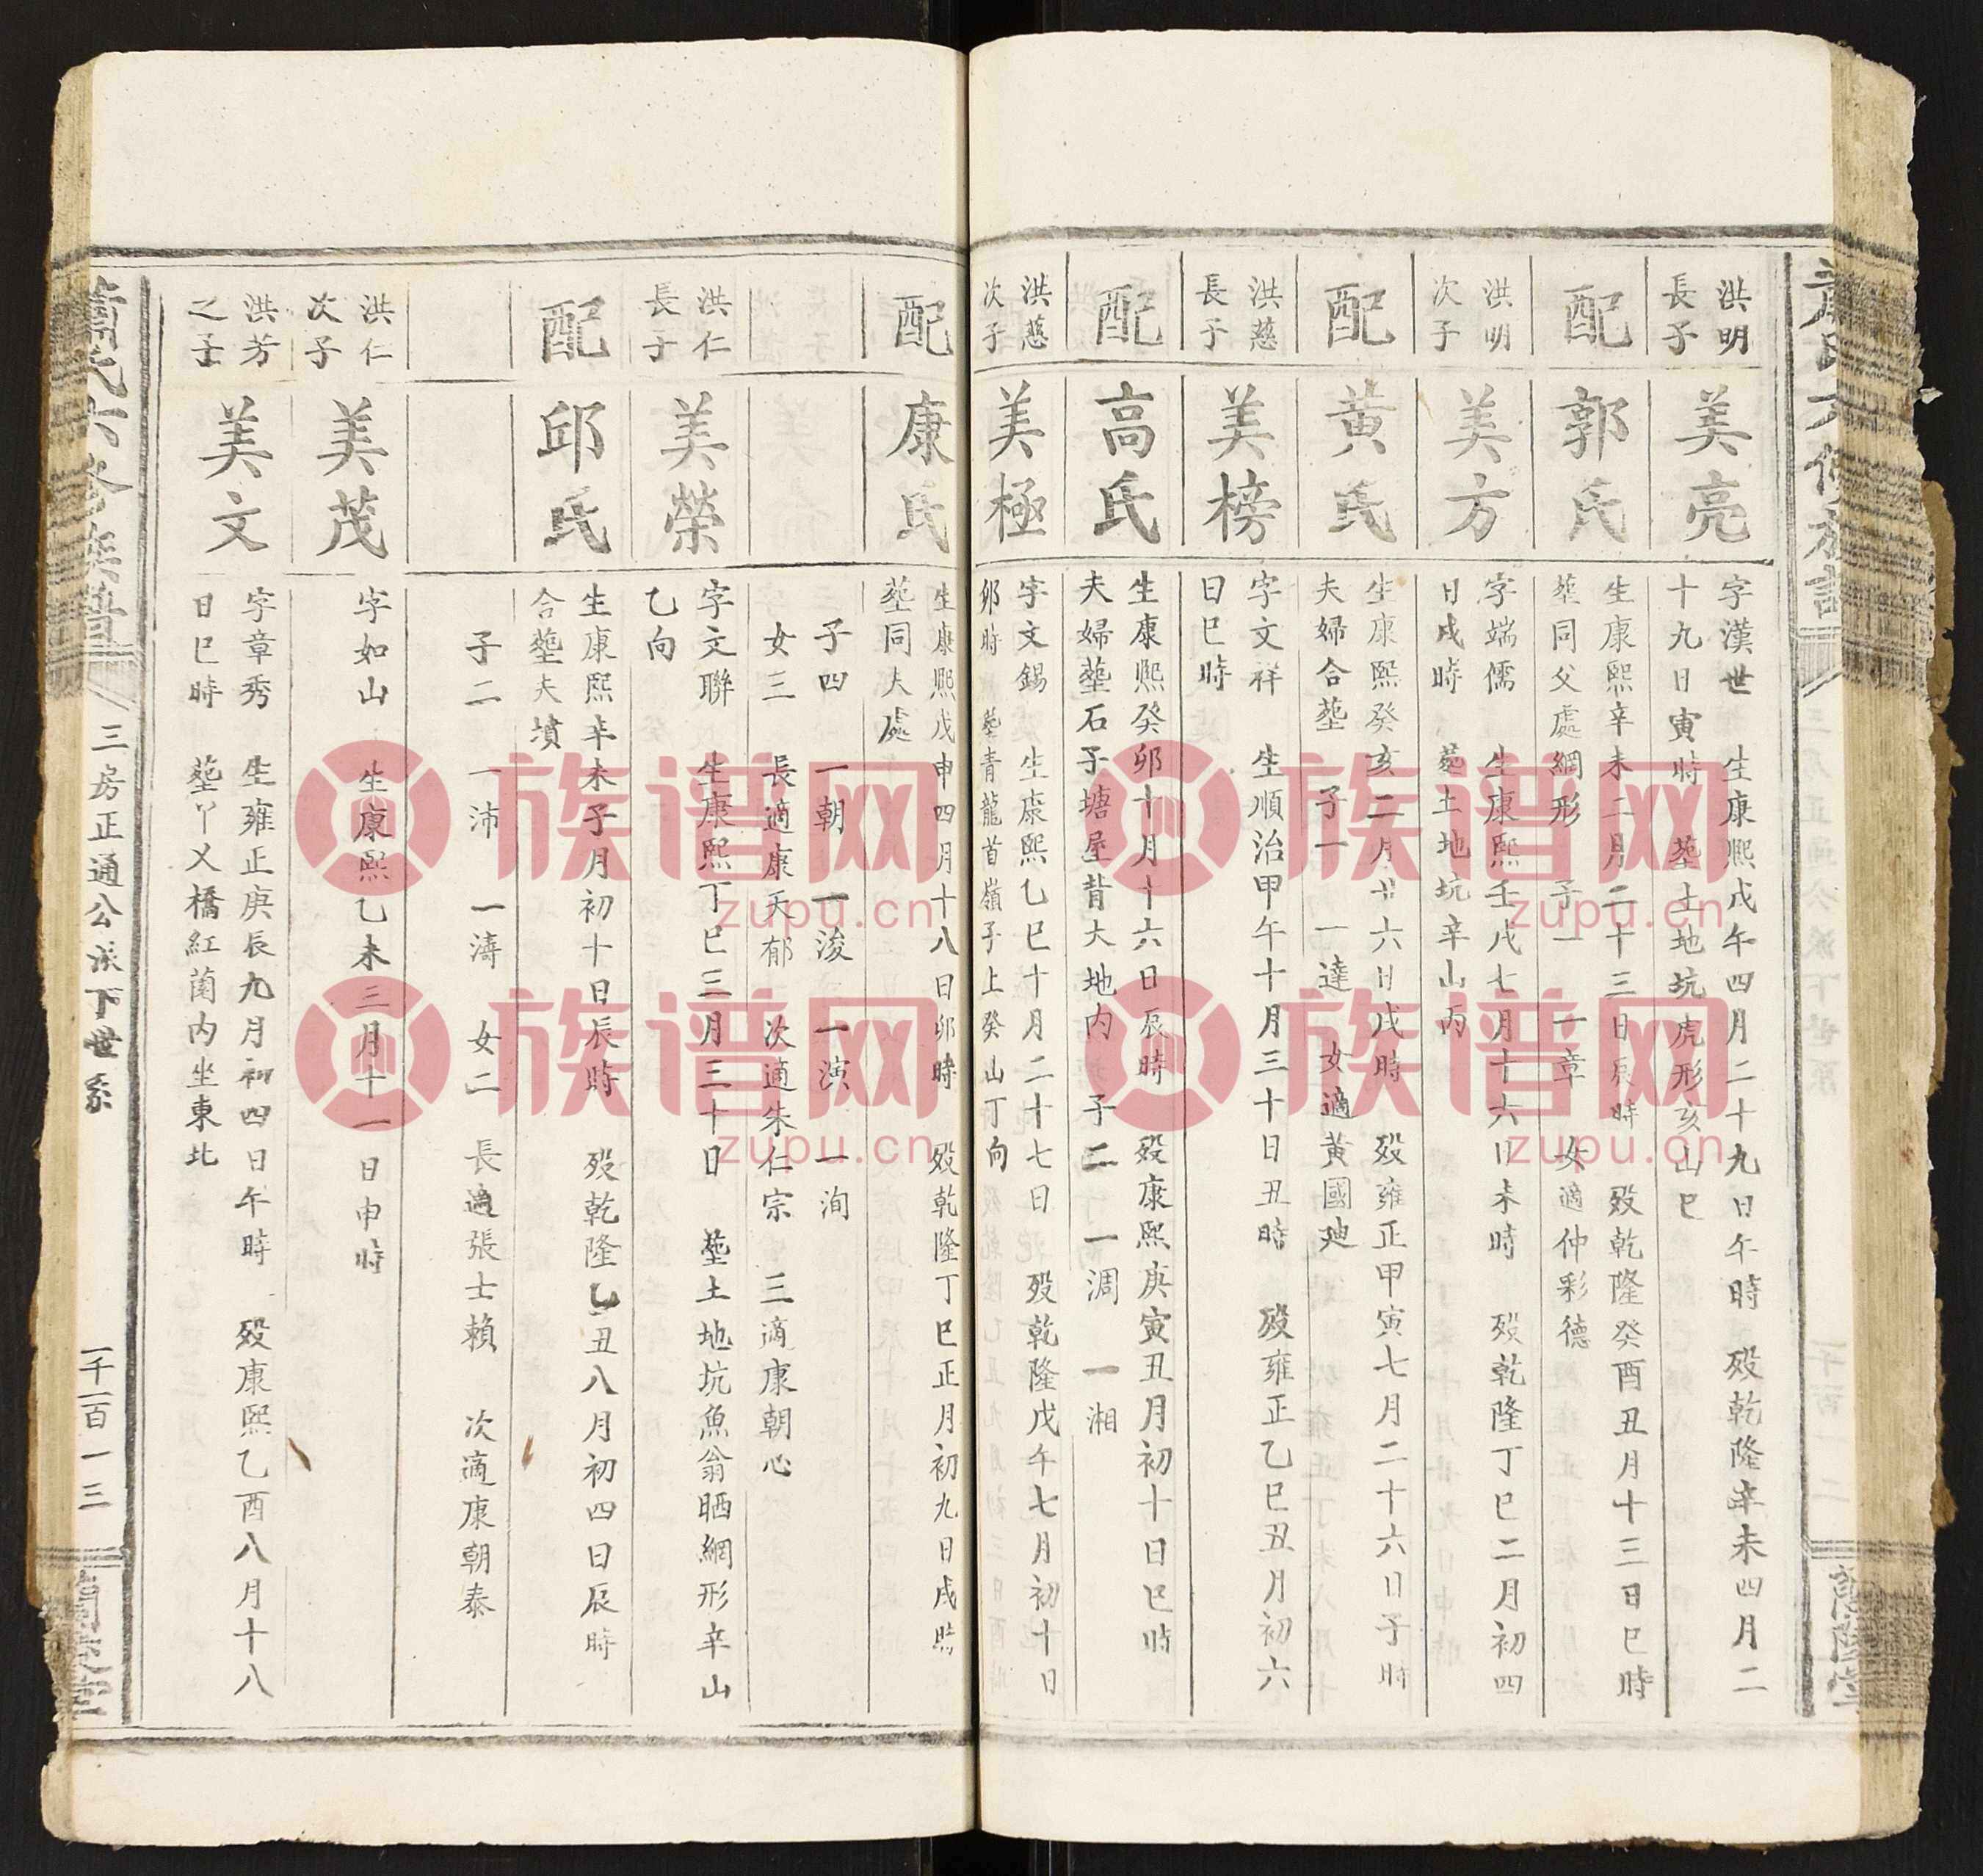 洪明
長子
美亮
字漢世　生康熙戊午四月二十九日午時　歿乾隆辛未四月二
十九日寅時　塟土地坑虎形亥山巳
配
郭氏
生康熙辛未二月二十三日辰時　歿乾隆癸酉丑月十三日巳時
塟同父處綱形　子一　一章　女適仲彩德
洪明
次子
美方
字端儒　生康熙壬戌七月十六日未時　歿乾隆丁巳二月初四
日戌時　塟土地坑辛山丙
配
黄氏
生康熙癸亥二月廿六日戌時　歿雍正甲寅七月二十六日子時
夫婦合塟　子一　一達　女適黄國廸
洪慈
長子
美榜
字文祥　生順治甲午十月三十日丑時　歿雍正乙巳丑月初六
日巳時
配
高氏
生康熙癸卯十月十六日辰時　歿康熙庚寅丑月初十日巳時
夫婦塟石子塘屋背大地内　子二　一凋　一湘
洪慈
次子
美極
字文錫　生康熙乙巳十月二十七日　歿乾隆戊午七月初十日
卯時　塟青龍首嶺子上癸山丁向
配
康氏
生康熙戊申四月十八日卯時　歿乾隆丁巳正月初九日戌時
塟同夫處
子四　一朝　一浚　一演　一洵
女三　長適康天郁　次適朱仁宗　三適康朝心
洪仁
長子
美榮
字文聯　生康熙丁巳三月三十日　塟土地坑魚翁晒網形辛山
乙向
配
邱氏
生康熙辛未子月初十日辰時　歿乾隆乙丑八月初四日辰時
合塟夫墳
子二　一沛　一濤　女二　長適張士賴　次適康朝泰
洪仁
次子
美茂
字如山　生康熙乙未三月十一日申時
洪芳
之子
美文
字章秀　生雍正庚辰九月初四日午時　歿康熙乙酉八月十八
日巳時　塟丫乂橋紅菌内坐東北
三房正通公派下世系
一千一百一十三
族谱网
zupu.cn
族谱网
zupu.cn
族谱网
zupu.cn
族谱网
zupu.cn